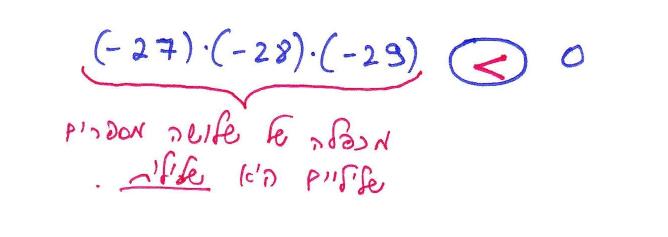 (-27)·(-28)·(-29) < 0
מכפלה של שלושה מספרים
שליליים היא שלילית.